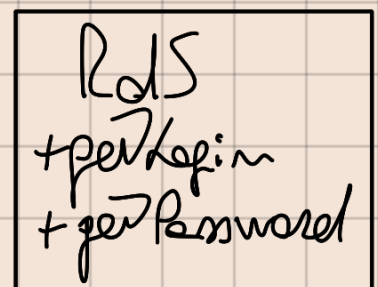 RdS
+getLogin
+getPassword